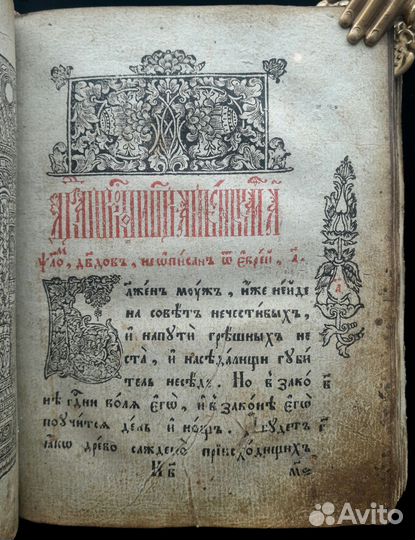 ѱало́м, дв҃довъ, не ѡ҆писанъ ѿ є҆врє́й, а҃.
Блаже́н мо́ужъ, и҆́же не и҆́де
на совѣ́тъ нечести́выхъ,
и҆ на пꙋ́ть грѣ́шныхъ не
ста̀, и҆ на сѣда́лищи гꙋби́
тель не сѣ́де. Но в̾ зако́
нѣ гдⷭ҇ни во́лѧ є҆гѡ̀, и҆ в̾ зако́нѣ є҆гѡ̀
поꙋчи́тсѧ де́нь и҆ но́щь. И҆ бꙋ́детъ
ꙗ҆́кѡ дре́во сажде́но при и҆схо́дищихъ
а҃
в҃
г҃
Avito